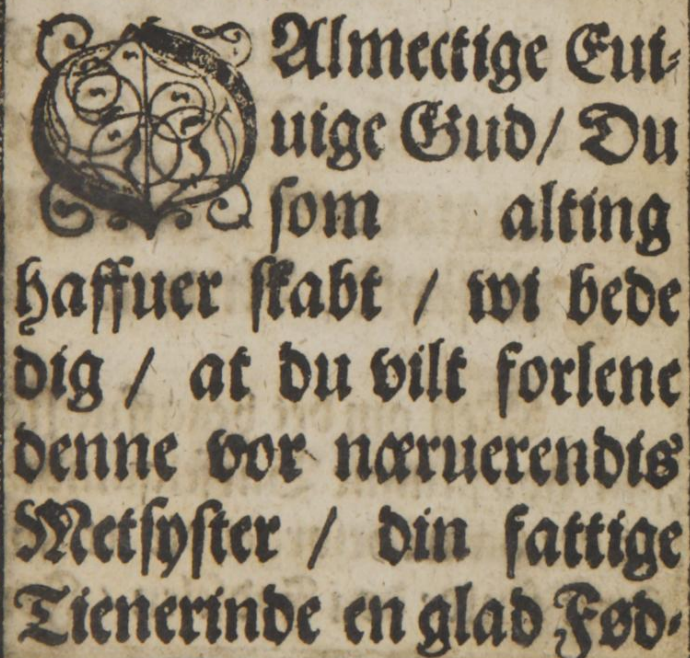 O Almectige Eui⸗
uige Gud/ Du
som alting
haffuer skabt / wi bede
dig / at du vilt forlene
denne vor næruerendis
Metsyster / din fattige
Tienerinde en glad Fød⸗